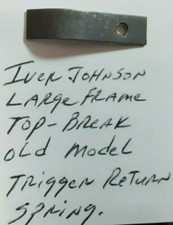 Iver Johnson
Large Frame
Top-Break
Old Model
Trigger Return
Spring.